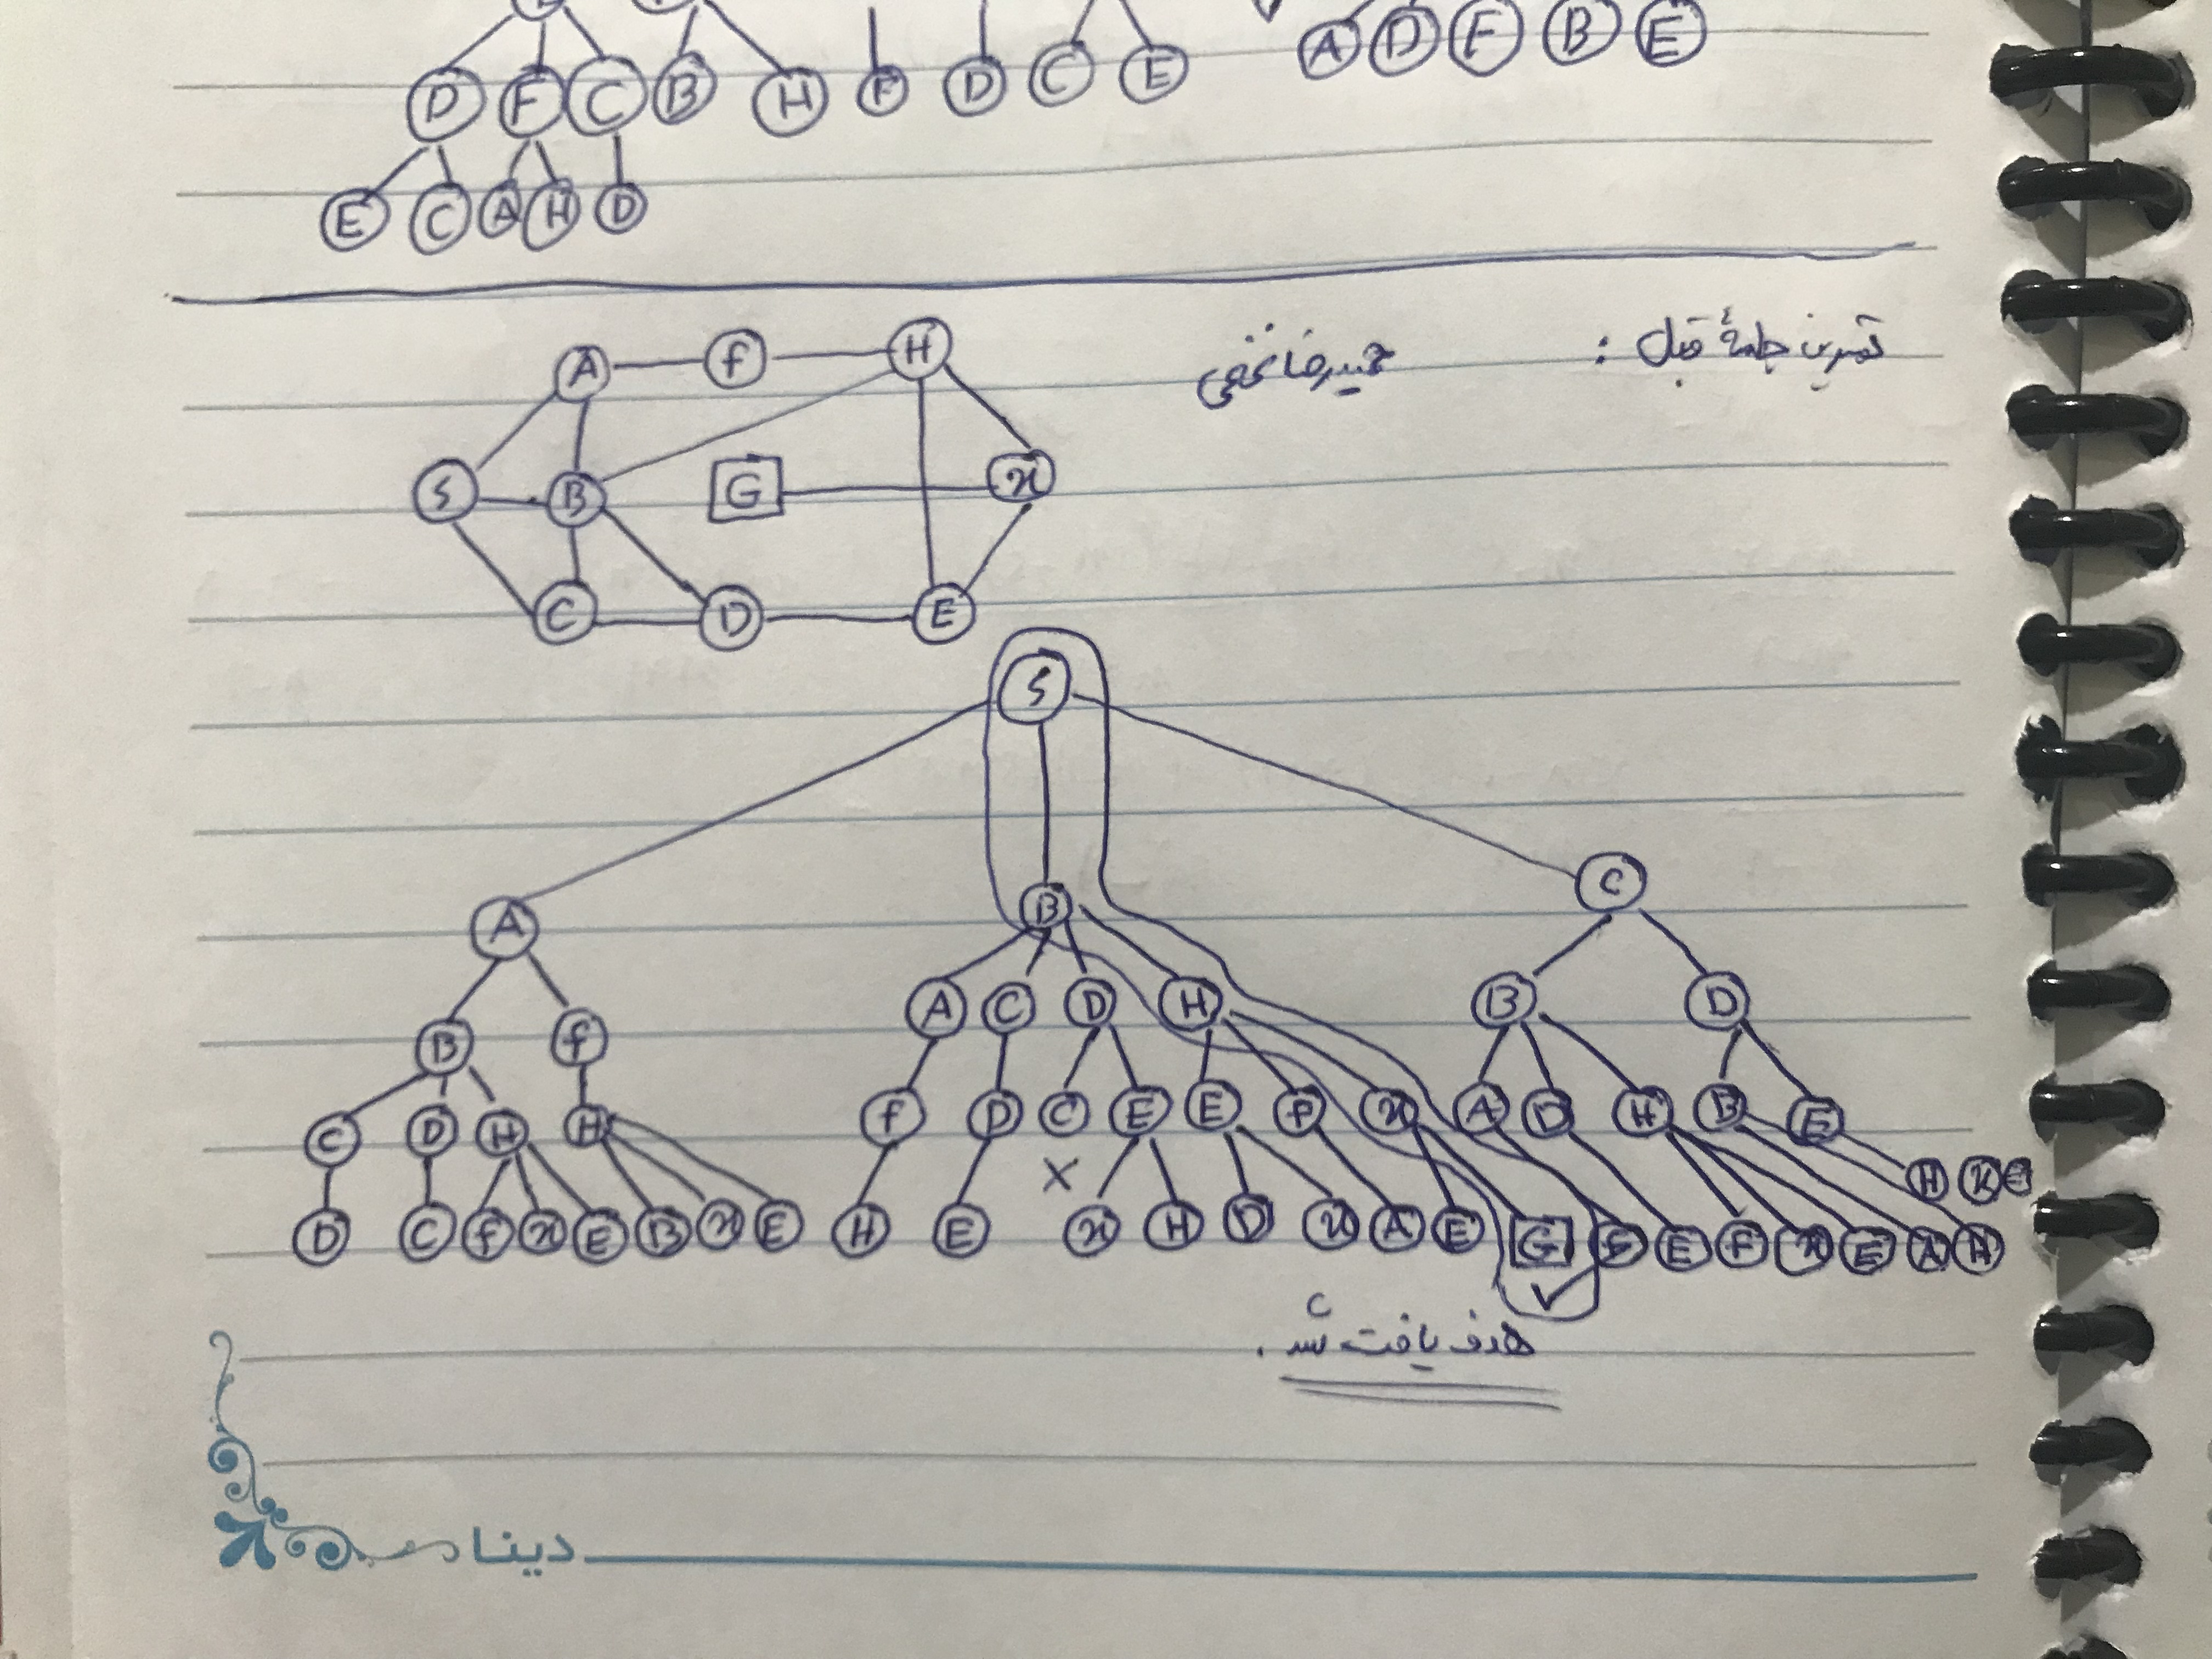 A D F B E
D F C B H F D C E
E C A H D
تمرین جلسهٔ قبل :
حمیدرضا نخعی
A f H
S B G x
C D E
S
A B C
B f A C D H B D
C D H H f D C E E F x A D H B E
H x E
D C f x E B x E H E x H D x A E G F E F x E A H
هدف یافت شد .
دینا